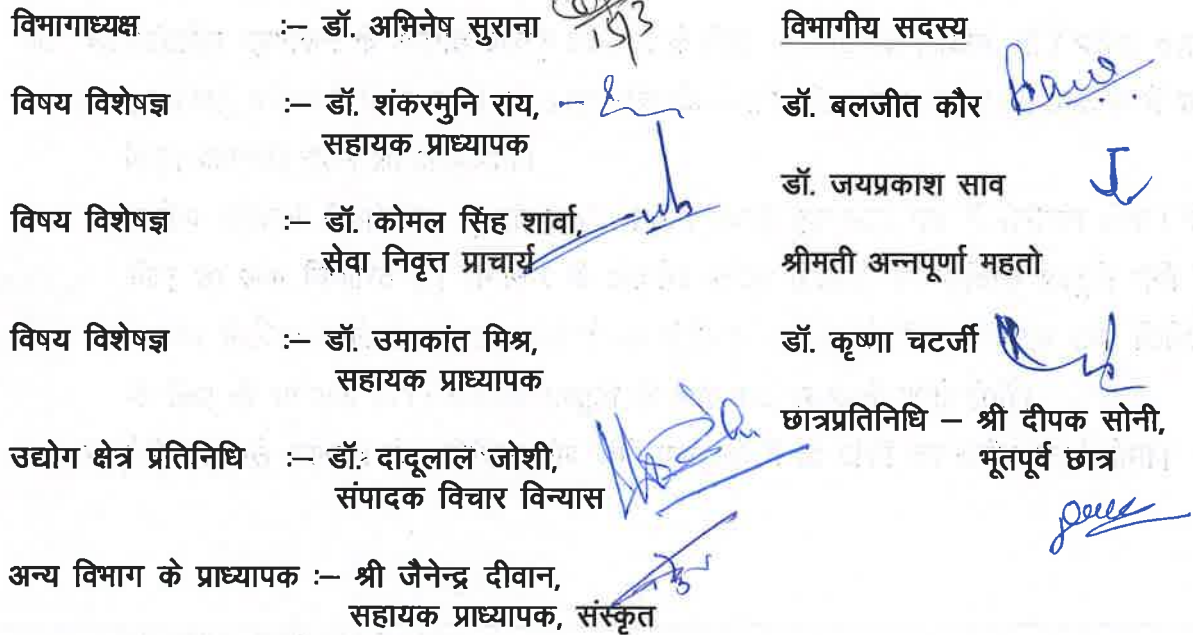 विभागाध्यक्ष :– डॉ. अभिनेष सुराना
15/3
विषय विशेषज्ञ :– डॉ. शंकरमुनि राय,
सहायक प्राध्यापक
विषय विशेषज्ञ :– डॉ. कोमल सिंह शार्वा,
सेवा निवृत्त प्राचार्य
विषय विशेषज्ञ :– डॉ. उमाकांत मिश्र,
सहायक प्राध्यापक
उद्योग क्षेत्र प्रतिनिधि :– डॉ. दादूलाल जोशी,
संपादक विचार विन्यास
अन्य विभाग के प्राध्यापक :– श्री जैनेन्द्र दीवान,
सहायक प्राध्यापक, संस्कृत
विभागीय सदस्य
डॉ. बलजीत कौर
डॉ. जयप्रकाश साव
श्रीमती अन्नपूर्णा महतो
डॉ. कृष्णा चटर्जी
छात्रप्रतिनिधि – श्री दीपक सोनी,
भूतपूर्व छात्र